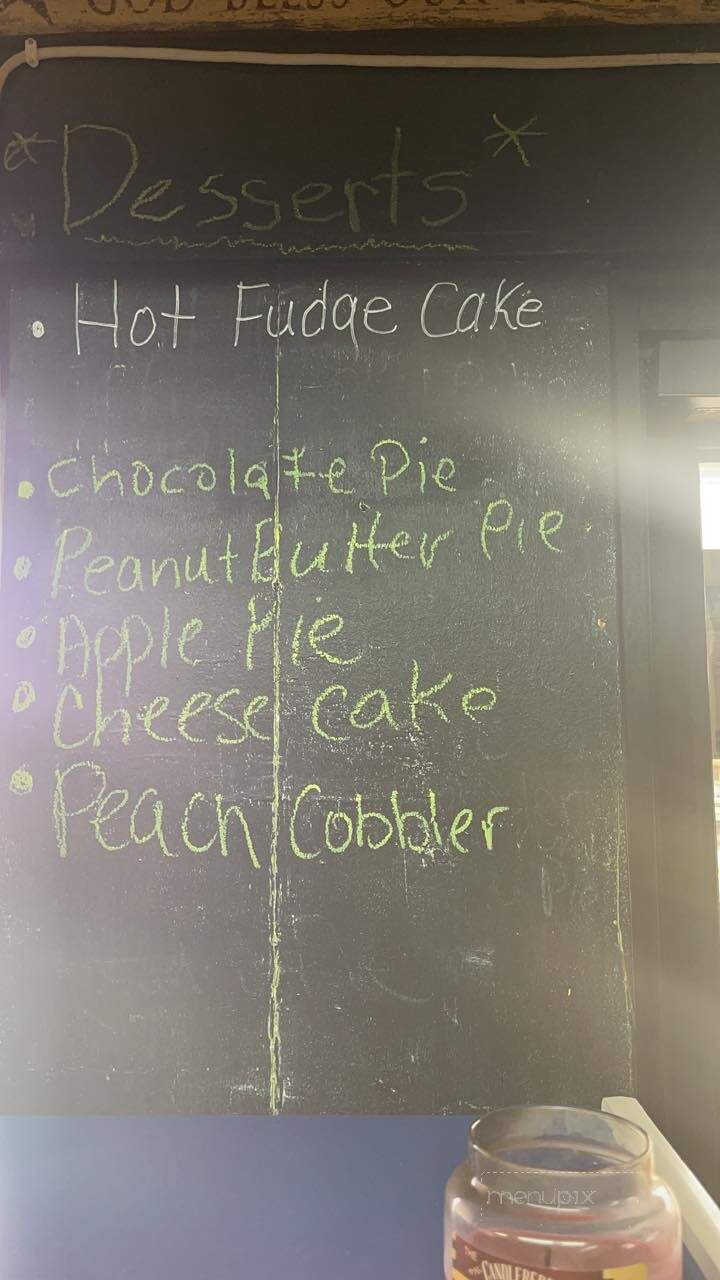 GOD BLESS OUR
*Desserts*
• Hot Fudge Cake
• Chocolate Pie
• Peanut Butter Pie
• Apple Pie
• Cheese cake
• Peach Cobbler
menupix
THE
CANDLEBE